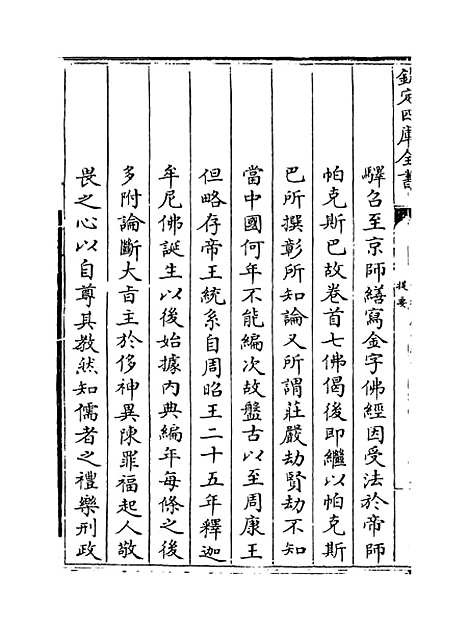 欽定四庫全書
提要
驛召至京師繕寫金字佛經因受法於帝師
帕克斯巴故卷首七佛偈後即繼以帕克斯
巴所撰彰所知論又所謂莊嚴劫賢劫不知
當中國何年不能編次故盤古以至周康王
但略存帝王統系自周昭王二十五年釋迦
牟尼佛誕生以後始據內典編年每條之後
多附論斷大旨主於侈神異陳罪福起人敬
畏之心以自尊其教然知儒者之禮樂刑政